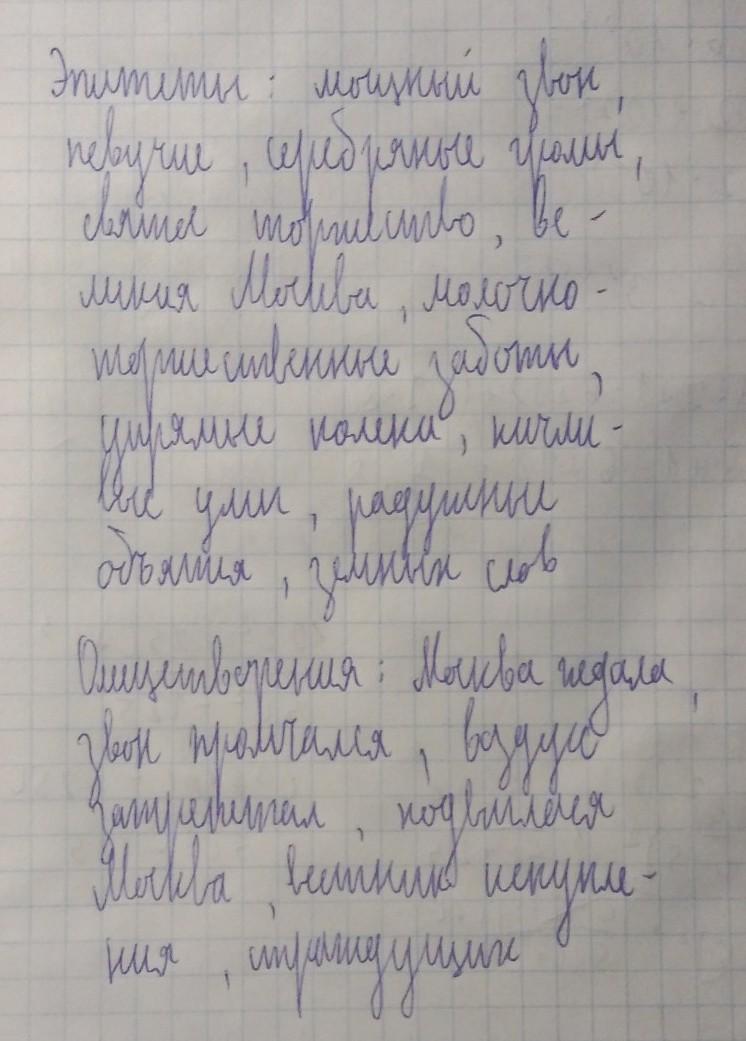 Эпитеты: мощный звон,
певучие, серебряные громы,
святое торжество, ве-
ликия Москва, молочно-
торжественные заботы,
упрямые колена, кичли-
вые умы, радушных
объятия, земных слов
Олицетворения: Москва ждала,
звон промчался, воздух
затрепетал, подвигласа
Москва, вестник искупле-
ния, страждущих